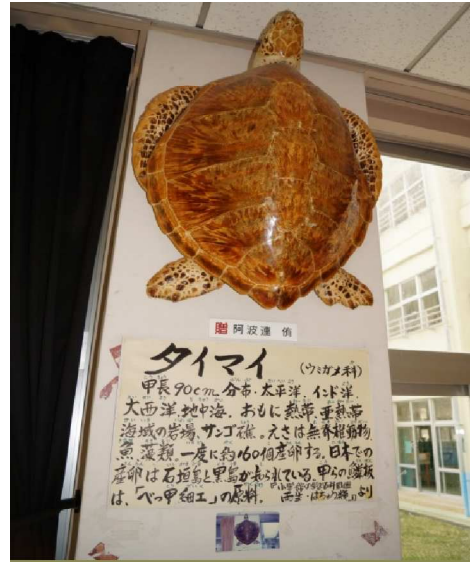 贈 阿波連 侑
タイマイ (ウミガメ科)
甲長90cm. 分布. 太平洋. インド洋.
大西洋. 地中海. おもに熱帯. 亜熱帯
海域の岩場. サンゴ礁。えさは無脊椎動物
魚. 海藻類. 一度に約160個産卵する。日本での
産卵は石垣島と黒島が知られている。甲らの鱗板
は、「べっ甲細工」の原料.
より